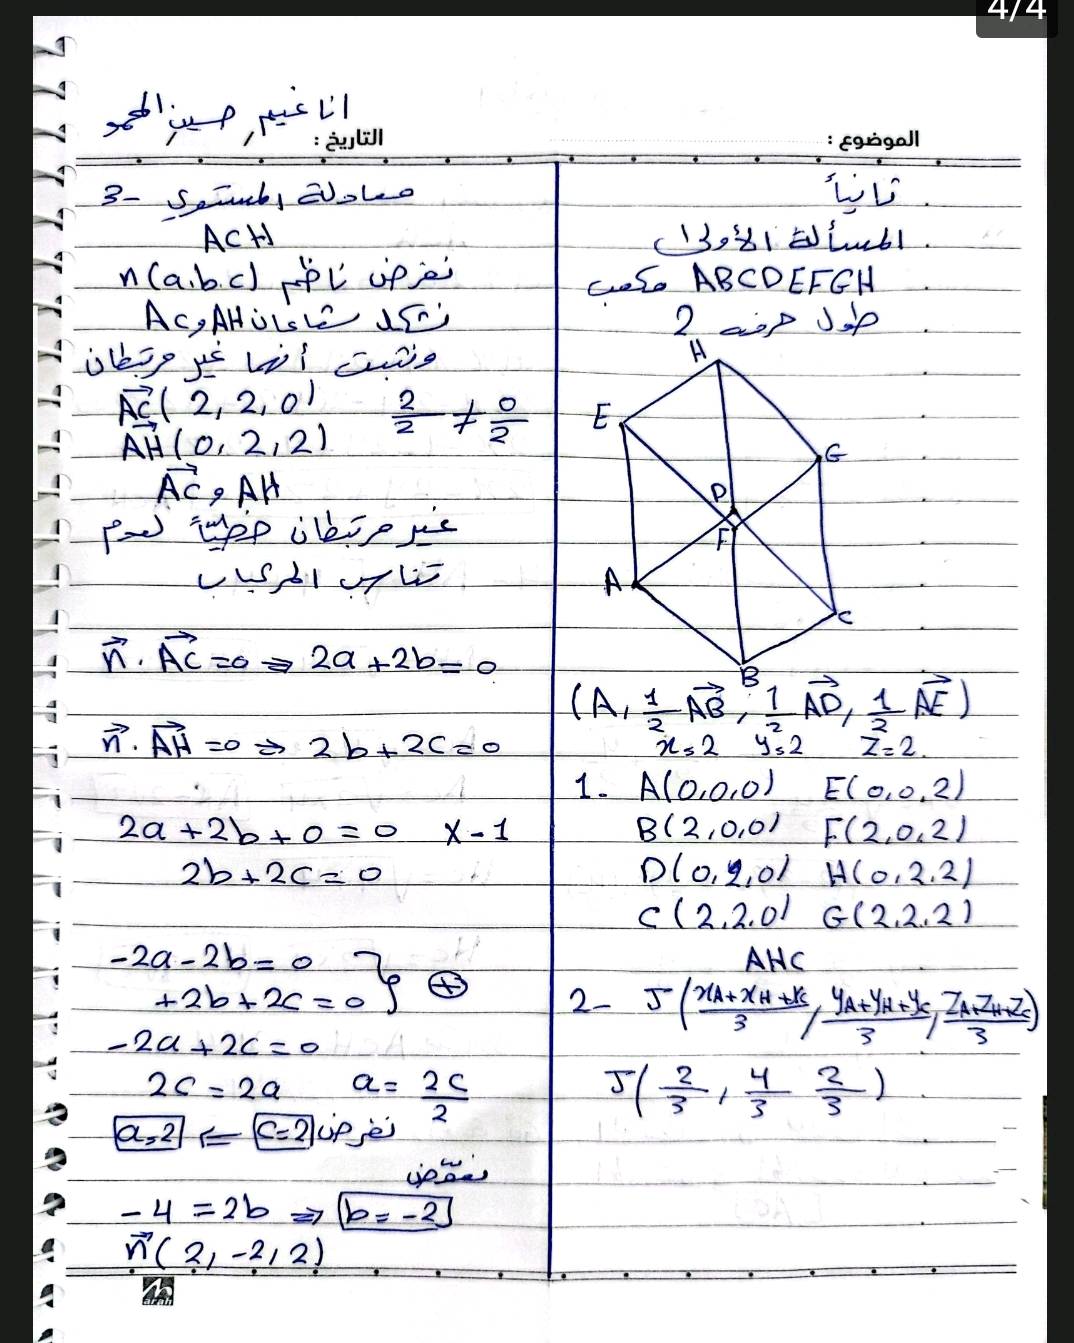 4/4
انا غيم حسين المحمو
الموضوع :
التاريخ :
ثانياً
المسألة الأولى
ABCDEFGH مكعب
طول حرفه 2
H
E
G
D
F
A
C
B
(A, 1/2 AB, 1/2 AD, 1/2 AE)
x=2 y=2 z=2
1- A(0,0,0) E(0,0,2)
B(2,0,0) F(2,0,2)
D(0,2,0) H(0,2,2)
C(2,2,0) G(2,2,2)
AHC
2- J(xA+xH+xC/3, yA+yH+yC/3, zA+zH+zC/3)
J(2/3, 4/3 2/3)
3- معادلة المستوي
ACH
نفرض ناظم n(a,b,c)
نشكل شعاعان AH و AC
ونثبت أنهما غير مرتبطان
AC(2,2,0) 2/2 ≠ 0/2
AH(0,2,2)
AC و AH
غير مرتبطان خطياً لعدم
تناسب المركبات
n . AC =0 ⇒ 2a+2b=0
n . AH =0 ⇒ 2b+2c=0
2a+2b+0=0 x-1
2b+2c=0
-2a-2b=0
+2b+2c=0 } ⊕
-2a+2c=0
2c=2a a=2c/2
نفرض c=2 ⇐ a=2
نعوض
-4=2b ⇒ b=-2
n(2,-2,2)
arah